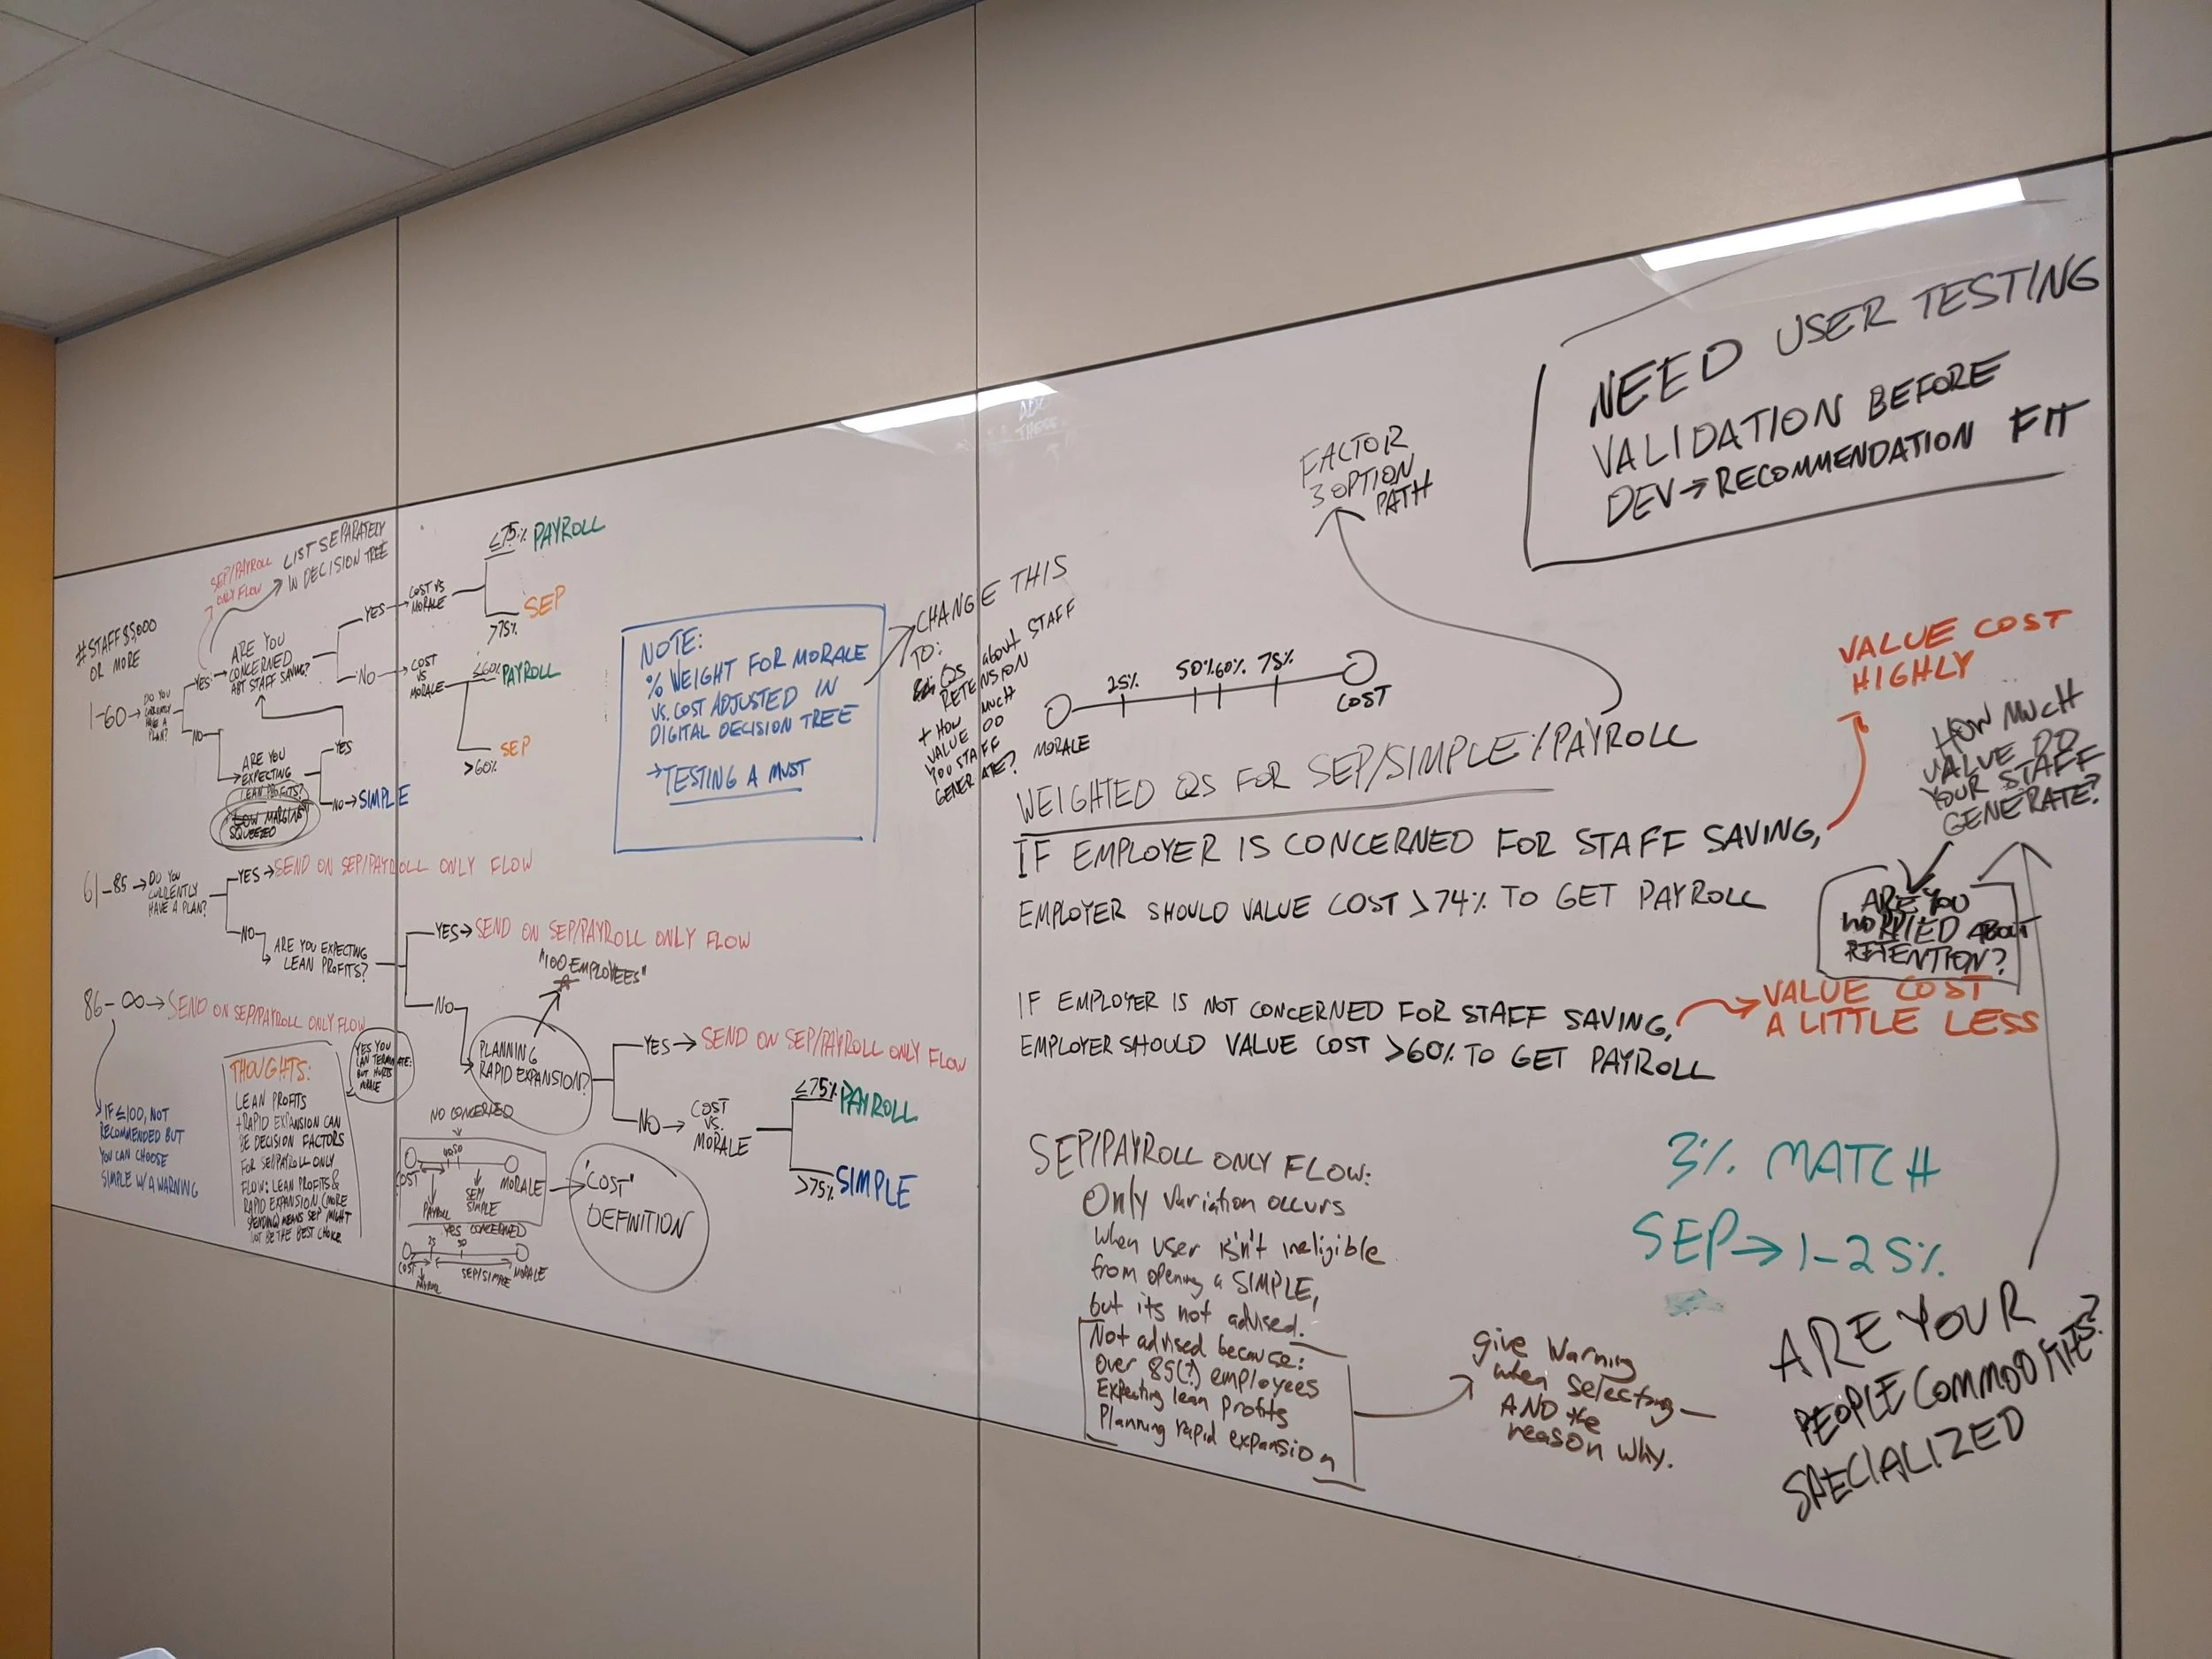 SEP/PAYROLL
ONLY FLOW
LIST SEPARATELY
IN DECISION TREE
#STAFF $5,000
OR MORE
1-60 →
DO YOU
CURRENTLY
HAVE A
PLAN?
YES →
ARE YOU
CONCERNED
ABT STAFF SAVING?
YES →
COST VS
MORALE
≤75% PAYROLL
SEP
>75%
NO →
COST
VS
MORALE
≤60% PAYROLL
SEP
>60%
NO
ARE YOU
EXPECTING
LEAN PROFITS?
LOW MARGINS
SQUEEZED
YES
NO → SIMPLE
61-85 → DO YOU
CURRENTLY
HAVE A PLAN?
YES → SEND ON SEP/PAYROLL ONLY FLOW
NO
ARE YOU EXPECTING
LEAN PROFITS?
YES → SEND ON SEP/PAYROLL ONLY FLOW
"100 EMPLOYEES"
NO
PLANNING
RAPID EXPANSION?
YES → SEND ON SEP/PAYROLL ONLY FLOW
NO → COST
VS.
MORALE
≤75% PAYROLL
>75% SIMPLE
86-∞ → SEND ON SEP/PAYROLL ONLY FLOW
IF ≤100, NOT
RECOMMENDED BUT
YOU CAN CHOOSE
SIMPLE W/A WARNING
THOUGHTS:
LEAN PROFITS
+RAPID EXPANSION CAN
BE DECISION FACTORS
FOR SEP/PAYROLL ONLY
FLOW: LEAN PROFITS &
RAPID EXPANSION (MORE
SPENDING) MEANS SEP MIGHT
NOT BE THE BEST CHOICE
YES YOU
CAN TERMINATE:
BUT HURTS
MORALE
NO CONCERNED
COST
MORALE
PAYROLL
SEP/
SIMPLE
YES CONCERNED
25 50
COST
SEP/SIMPLE
MORALE
PAYROLL
"COST"
DEFINITION
NOTE:
% WEIGHT FOR MORALE
VS. COST ADJUSTED IN
DIGITAL DECISION TREE
→ TESTING A MUST
CHANGE THIS
TO:
QS about STAFF
RETENSION
+ HOW MUCH
VALUE DO
YOU STAFF
GENERATE?
FACTOR
3 OPTION
PATH
NEED USER TESTING
VALIDATION BEFORE
DEV → RECOMMENDATION FIT
MORALE
25%
50% 60% 75%
COST
WEIGHTED QS FOR SEP/SIMPLE%/PAYROLL
IF EMPLOYER IS CONCERNED FOR STAFF SAVING,
EMPLOYER SHOULD VALUE COST >74% TO GET PAYROLL
VALUE COST
HIGHLY
IF EMPLOYER IS NOT CONCERNED FOR STAFF SAVING,
EMPLOYER SHOULD VALUE COST >60% TO GET PAYROLL
VALUE COST
A LITTLE LESS
HOW MUCH
VALUE DO
YOUR STAFF
GENERATE?
ARE YOU
WORRIED ABOUT
RETENTION?
SEP/PAYROLL ONLY FLOW:
Only variation occurs
when user isn't ineligible
from opening a SIMPLE,
but its not advised.
Not advised because:
Over 85(?) employees
Expecting lean profits
Planning rapid expansion
give warning
when selecting —
AND the
reason why.
3% MATCH
SEP → 1-25%
ARE YOUR
PEOPLE COMMODITIES?
SPECIALIZED